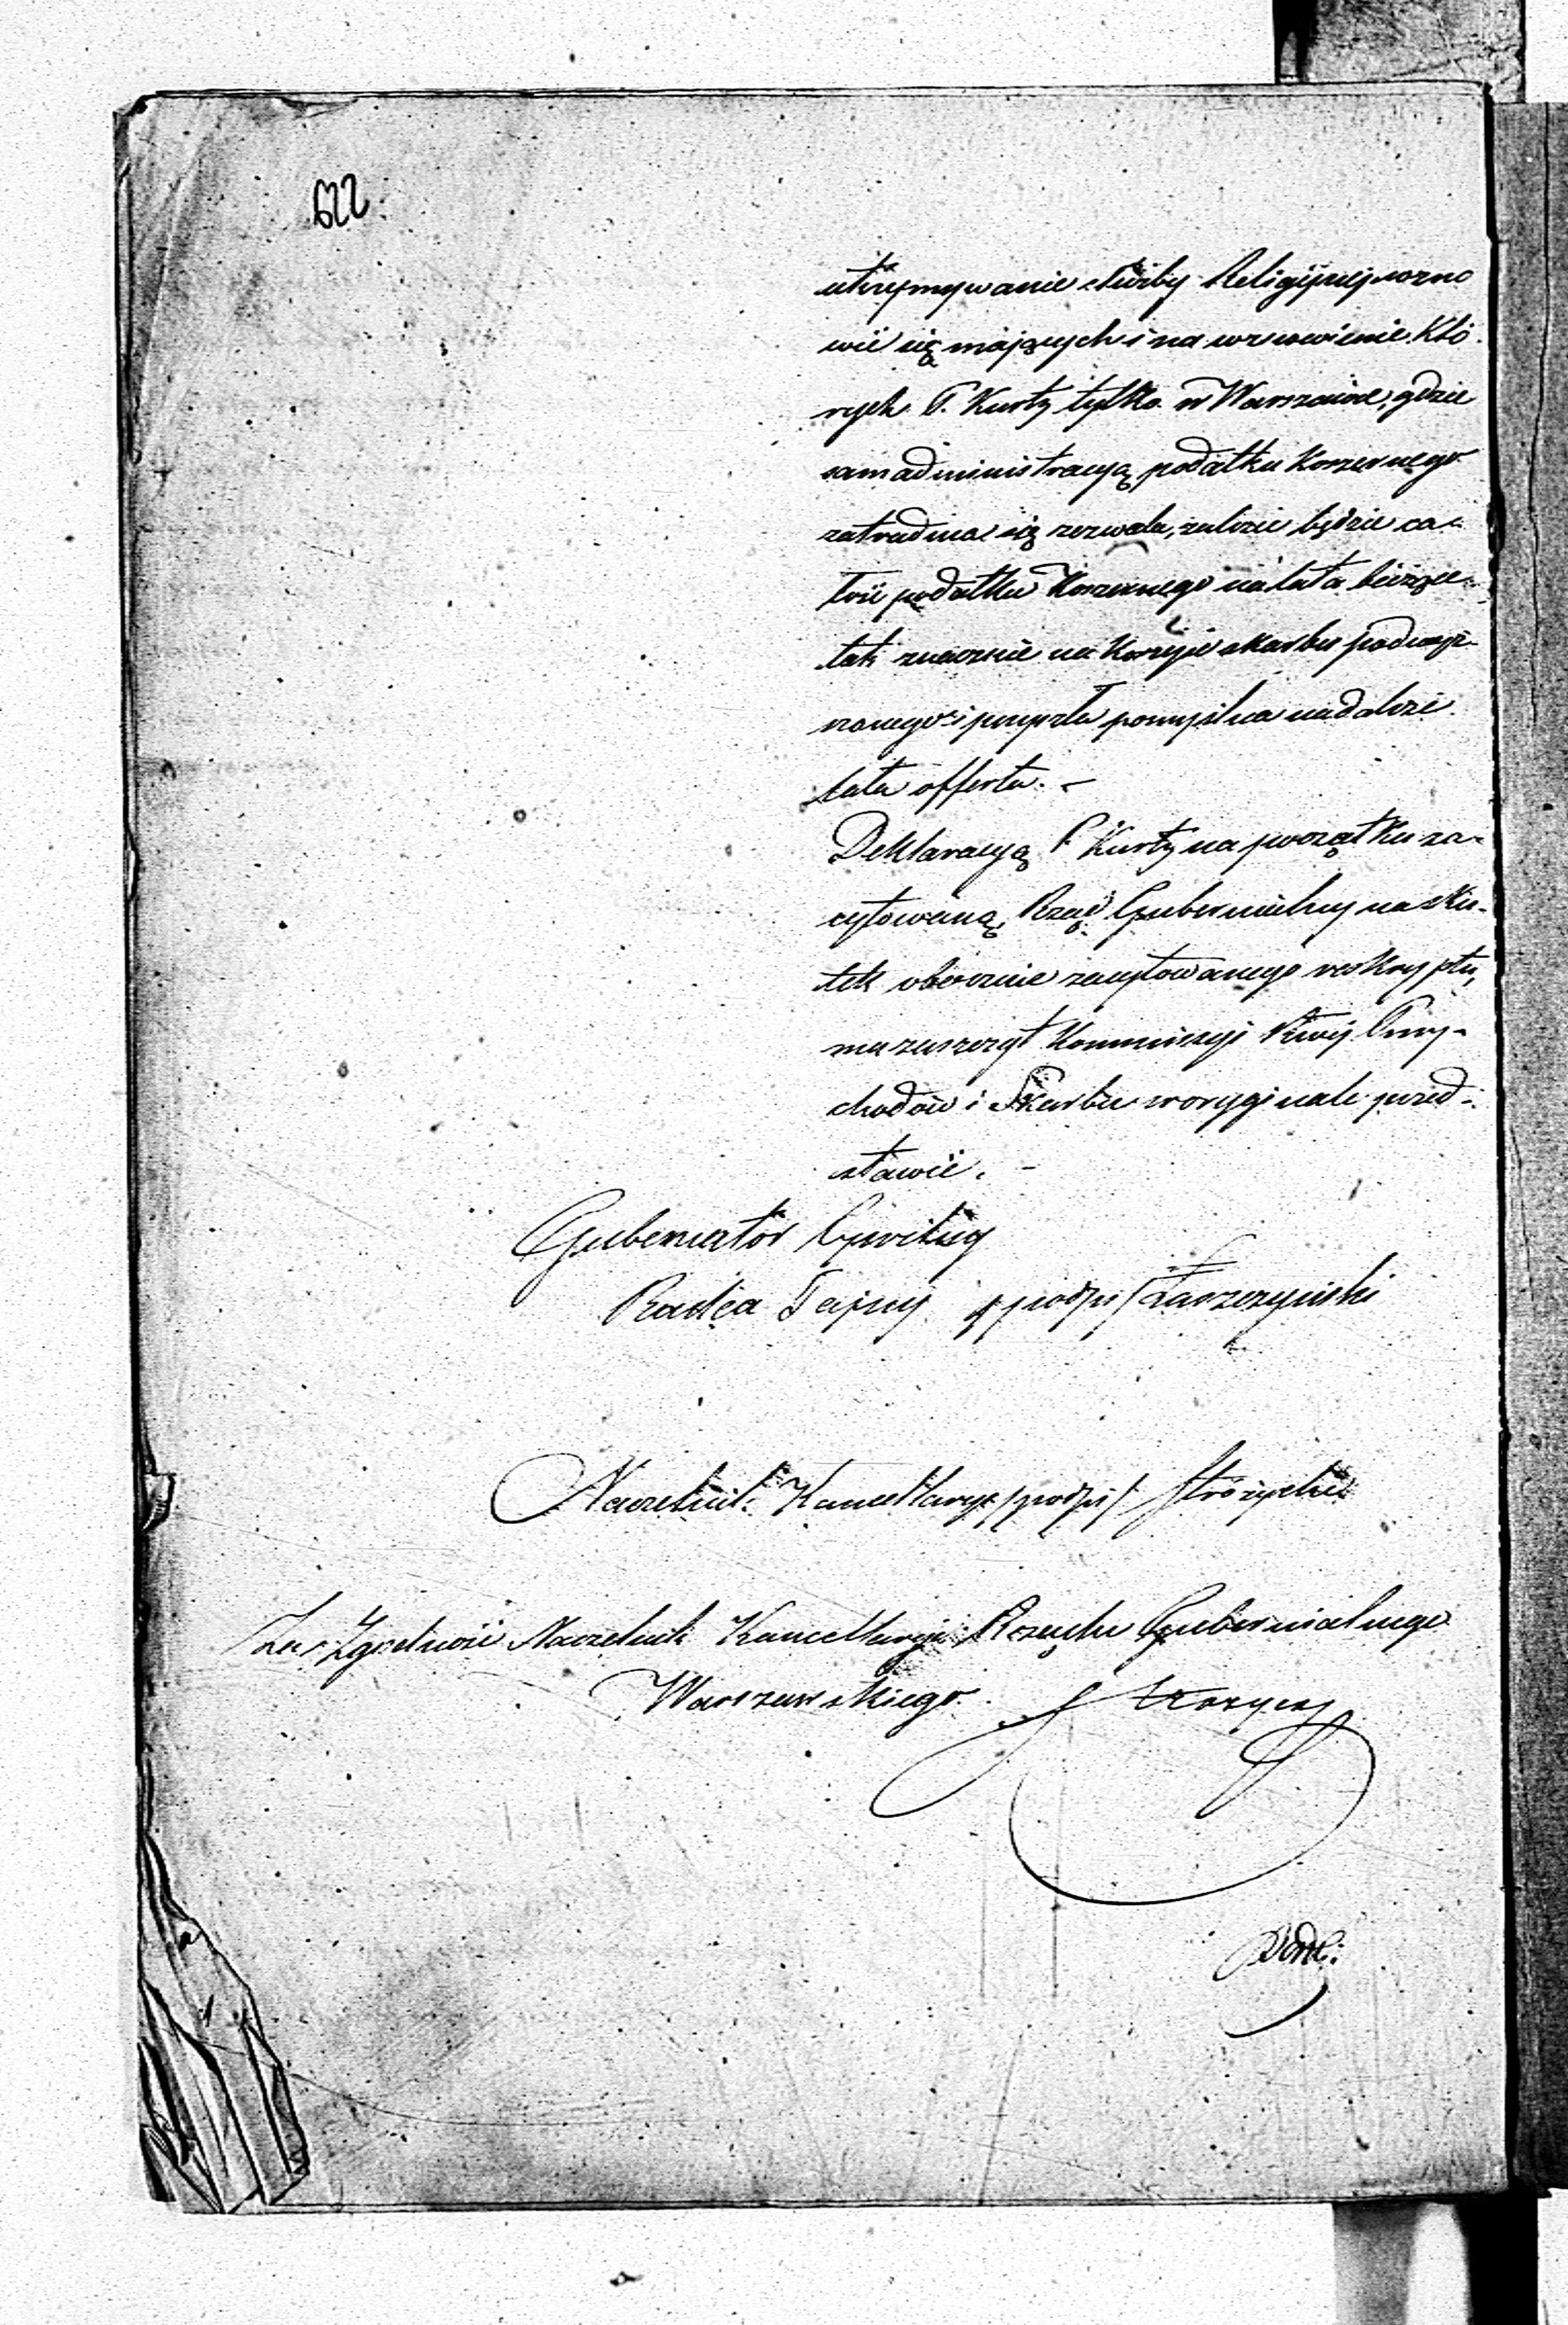 622
utrzymywanie służby Religijnej wzno
wić się mających i na wznowienie Któ
rych P. Kurtz tylko w Warszawie, gdzie
sam administracyą podatku Koszernego
zatrudnia się zezwala, będzie ca-
łość podatku Koszernego na lata bieżące
tak znacznie na Korzyść skarbu podwyż-
szonego i przyszła pomyślna nadal
lata offerta. –
Deklaracyą P. Kurtz na początku za-
cytowaną, Rząd Gubernialny na sku-
tek obecnie zacytowanego reskryptu,
ma zaszczyt Kommissyi Rwéj Przy-
chodów i Skarbu w oryginale przed-
stawić. –
Gubernator Cywilny
Radca Tajny /podpis/ Łaszczyński
Naczelnik Kancellaryi /podpis/
Za Zgodność Naczelnik Kancellaryi Rządu Gubernialnego
Warszawskiego